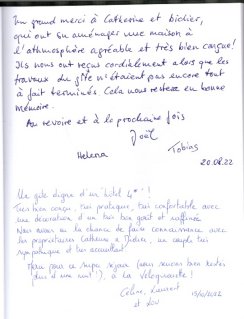 Un grand merci à Catherine et Didier,
qui ont su aménager une maison à
l'athmosphère agréable et très bien conçue!
Ils nous ont reçus cordialement alors que les
travaux du gîte n'étaient pas encore tout
à fait terminés. Cela nous restera en bonne
mémoire.
Au revoire et à la prochaine fois
Joël
Helena
Tobias
20.08.22
Un gîte digne d'un hôtel 4* !
Très bien conçu, très pratique, très confortable avec
une décoration d'un très bon goût et raffinée
Nous avons eu la chance de faire connaissance avec
les propriétaires Catherine & Didier, un couple très
sympathique et très accueillant.
pour ce super séjour (nous serions bien restés
plus d'une nuit !), à la Véloquoise !
Céline, Laurent
et Lou
15/10/2022